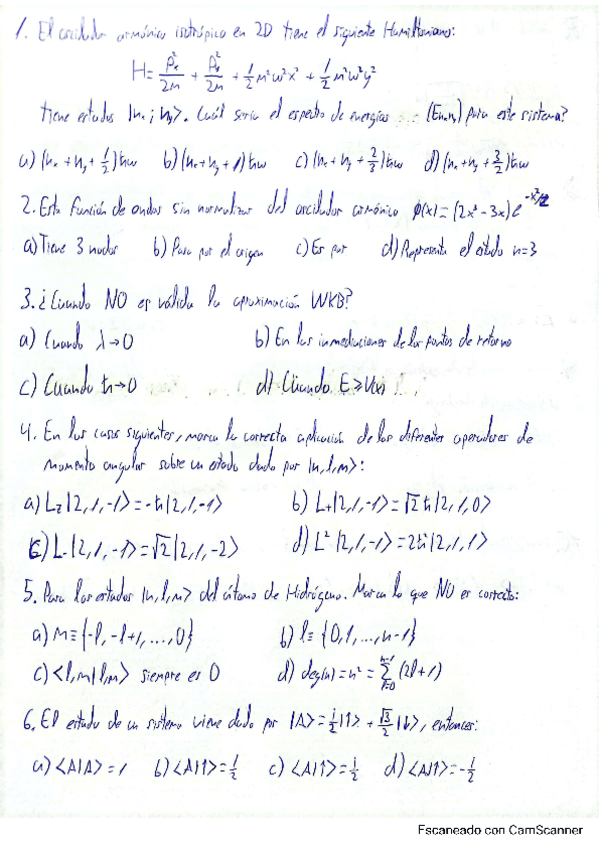 1. El oscilador armónico isotrópico en 2D tiene el siguiente Hamiltoniano:
H = Px²/2m + Py²/2m + 1/2 m²w²x² + 1/2 m²w²y²
tiene estados |nx; ny>. Cuál sería el espectro de energías (Enxny) para este sistema?
a) (nx + ny + 1/2)ħw b) (nx + ny + 1)ħw c) (nx + ny + 2/3)ħw d) (nx + ny + 3/2)ħw
2. Esta función de ondas sin normalizar del oscilador armónico φ(x) = (2x³ - 3x)e^(-x²/2)
a) Tiene 3 nodos b) Pasa por el origen c) Es par d) Representa el estado n=3
3. ¿Cuando NO es válida la aproximación WKB?
a) Cuando λ→0 b) En las inmediaciones de los puntos de retorno
c) Cuando ħ→0 d) Cuando E≥V(x)
4. En los casos siguientes, marca la correcta aplicación de los diferentes operadores de
momento angular sobre un estado dado por |n,l,m>:
a) Lz|2,1,-1> = -ħ|2,1,-1> b) L+|2,1,-1> = √2 ħ|2,1,0>
c) L-|2,1,-1> = √2|2,1,-2> d) L²|2,1,-1> = 2ħ²|2,1,1>
5. Para los estados |n,l,m> del átomo de Hidrógeno. Marca lo que NO es correcto:
a) m = {-l, -l+1, ..., 0} b) l = {0,1,...,n-1}
c) <l,m|l,m> siempre es 0 d) deg(n) = n² = Σ_{l=0}^{n-1} (2l+1)
6. El estado de un sistema viene dado por |A> = i/2|↑> + √3/2|↓>, entonces:
a) <A|A> = 1 b) <A|↑> = 1/2 c) <A|↑> = i/2 d) <A|↑> = -i/2
Escaneado con CamScanner